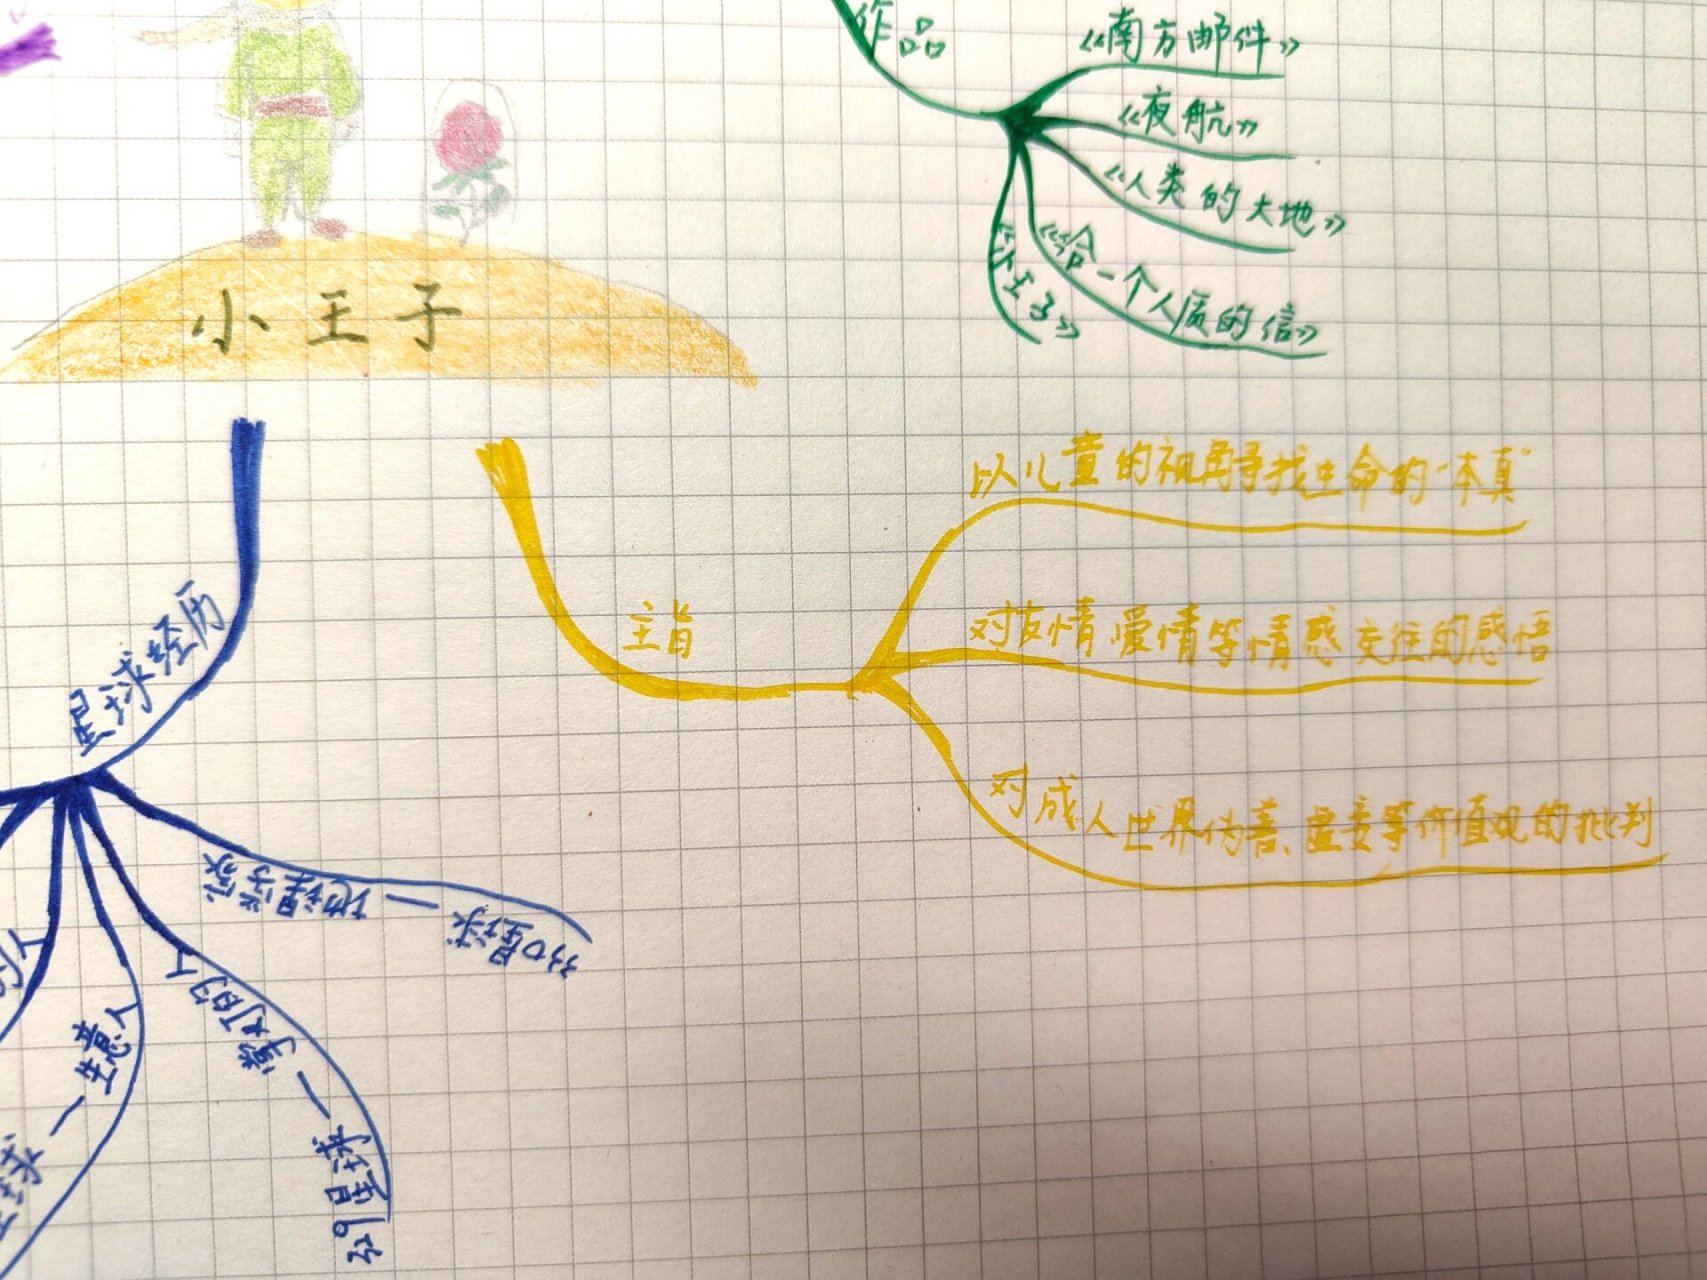 作品
《南方邮件》
《夜航》
《人类的大地》
《给一个人质的信》
《小王子》
小王子
主旨
以儿童的视野寻找生命的“本真”
对友情爱情等情感交往的感悟
对成人世界伪善、虚妄等价值观的批判
星球经历
地理学家—330星球
掌灯的人—329星球
生意人—
的人